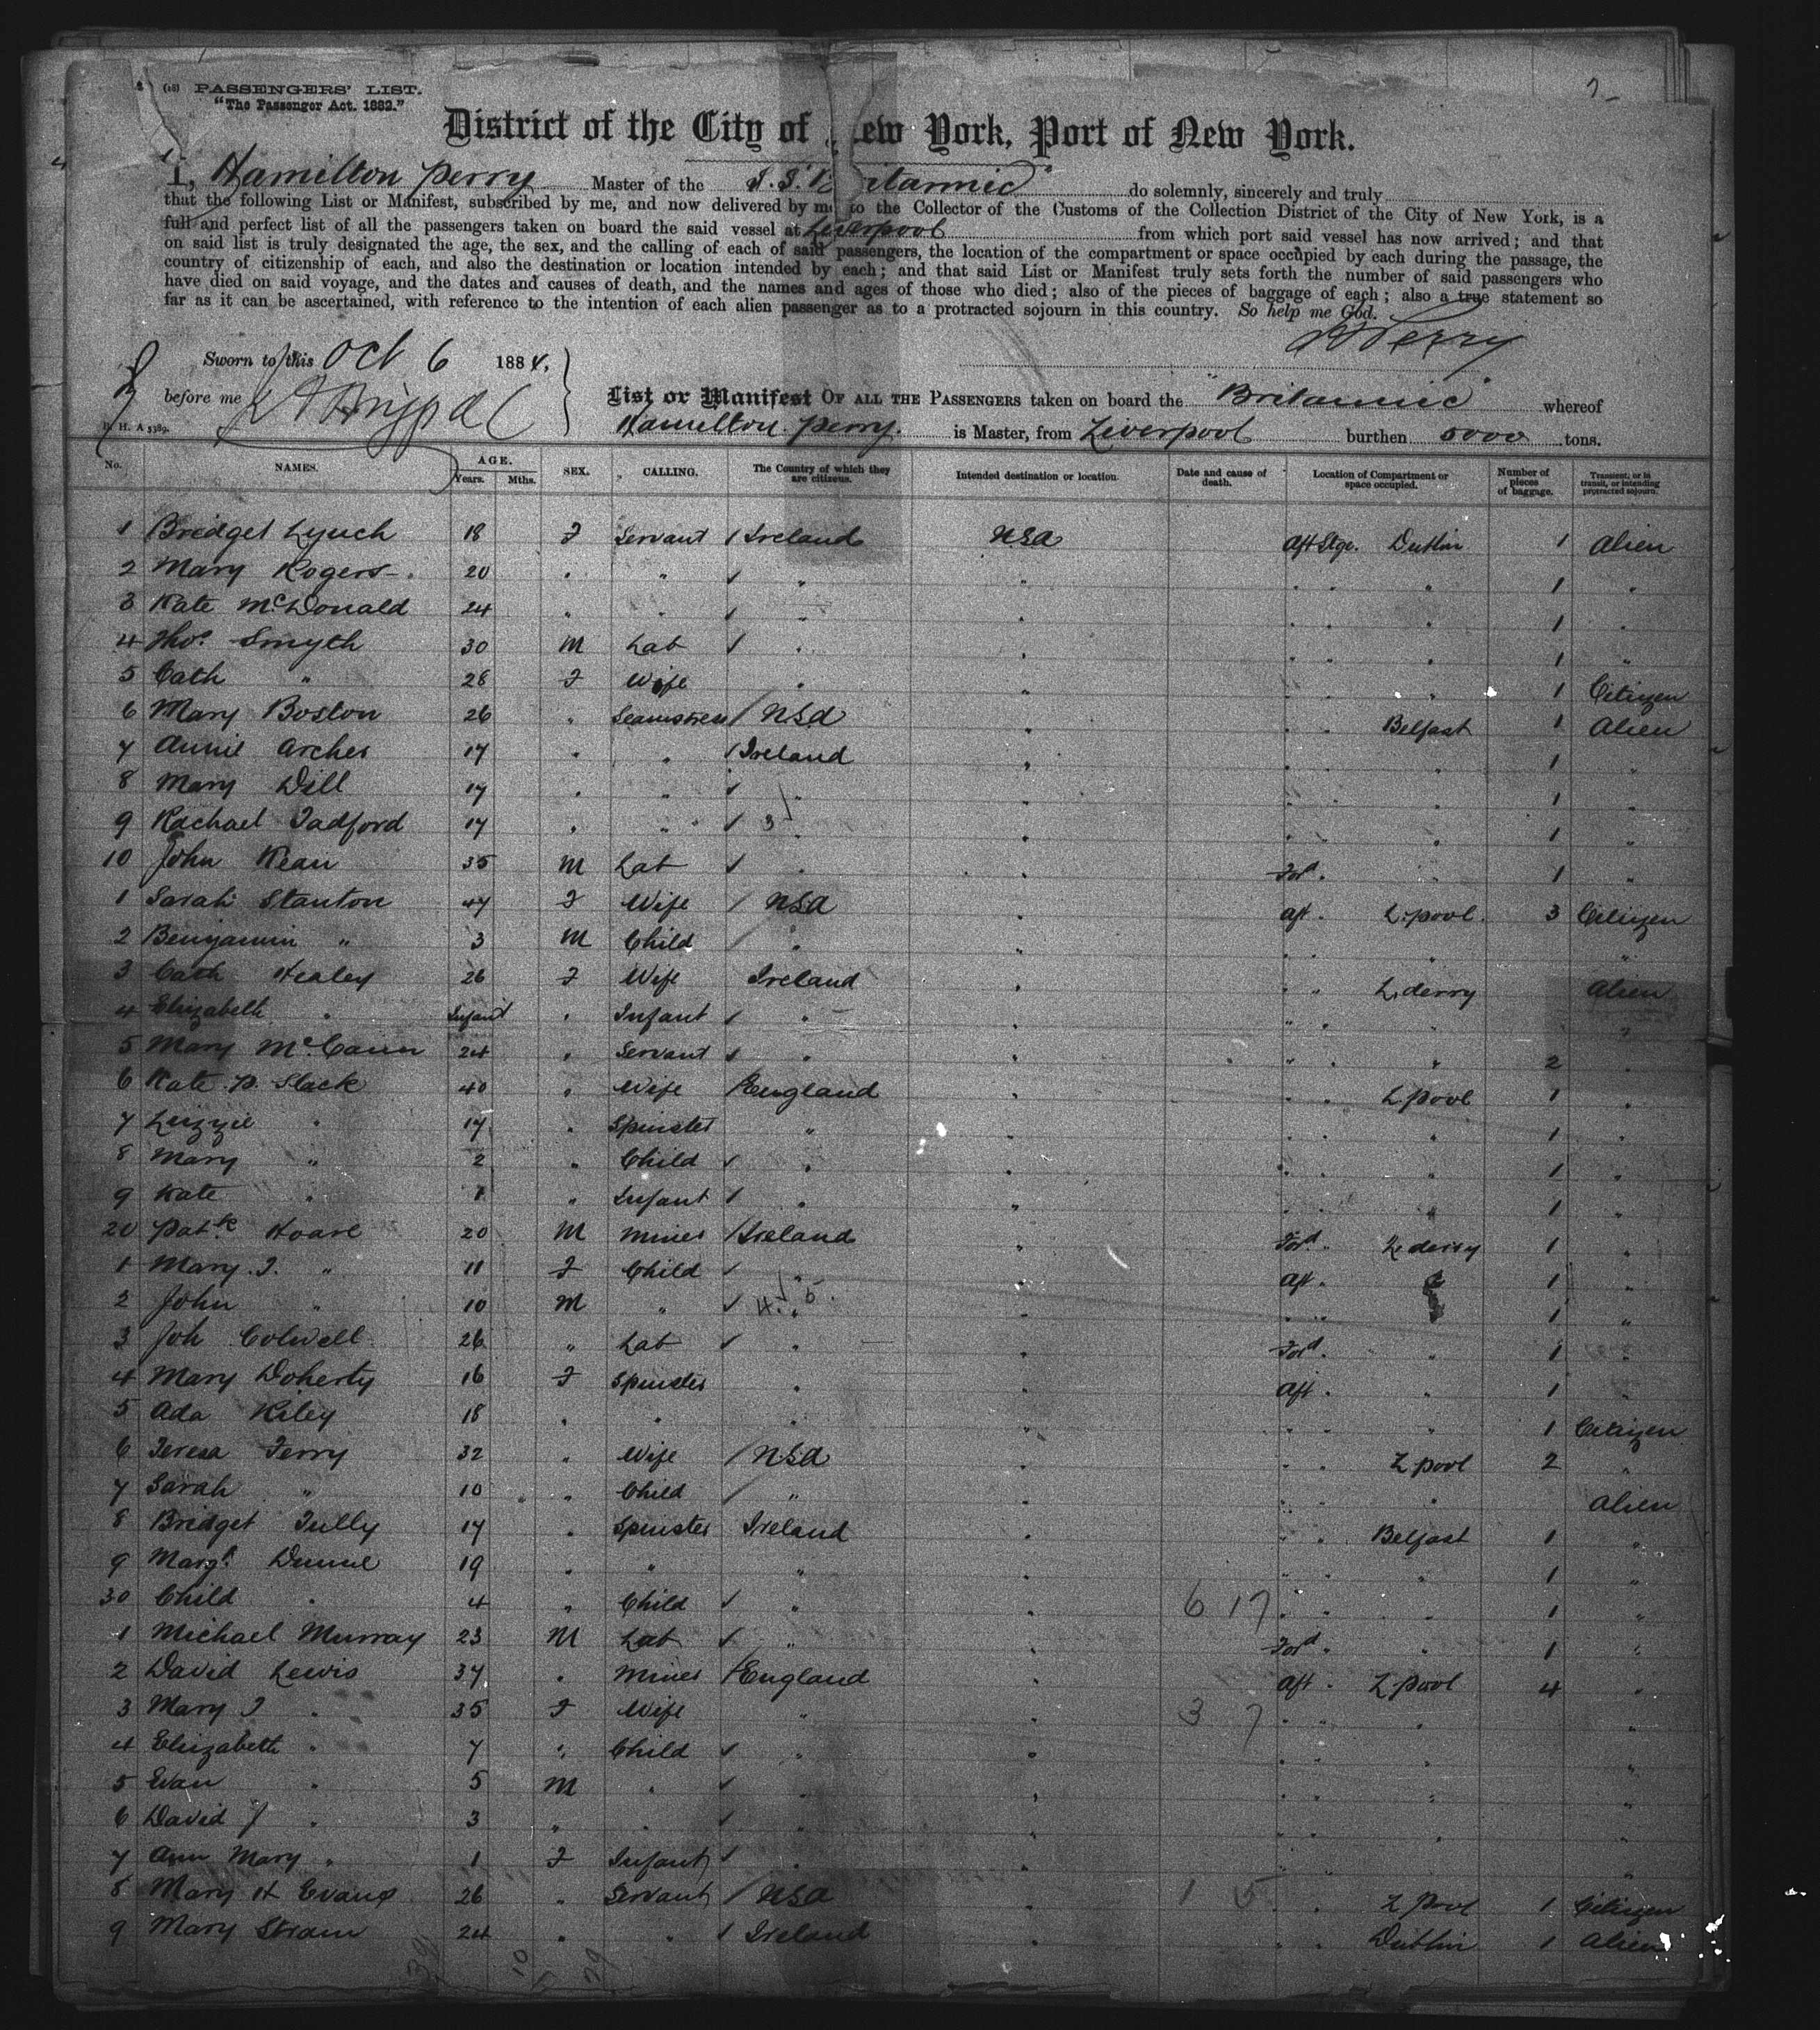 (18) PASSENGERS' LIST.
"The Passenger Act, 1882."
District of the City of New York, Port of New York.
I, Hamilton Perry Master of the S.S. Britannic do solemnly, sincerely and truly
that the following List or Manifest, subscribed by me, and now delivered by me to the Collector of the Customs of the Collection District of the City of New York, is a
full and perfect list of all the passengers taken on board the said vessel at Liverpool from which port said vessel has now arrived; and that
on said list is truly designated the age, the sex, and the calling of each of said passengers, the location of the compartment or space occupied by each during the passage, the
country of citizenship of each, and also the destination or location intended by each; and that said List or Manifest truly sets forth the number of said passengers who
have died on said voyage, and the dates and causes of death, and the names and ages of those who died; also of the pieces of baggage of each; also a true statement so
far as it can be ascertained, with reference to the intention of each alien passenger as to a protracted sojourn in this country. So help me God.
H Perry
Sworn to this Oct 6 1884,
before me
List or Manifest OF ALL THE PASSENGERS taken on board the "Britannic" whereof
Hamilton Perry. is Master, from Liverpool burthen 5000 tons.
R. H. A 5389.
No. NAMES. AGE. Years. Mths. SEX. CALLING. The Country of which they are citizens. Intended destination or location. Date and cause of death. Location of Compartment or space occupied. Number of pieces of baggage. Transient, or in transit, or intending protracted sojourn.
1 Bridget Lynch 18 F Servant Ireland USA Aft Stge. Dublin 1 Alien
2 Mary Rogers 20 " " " " " " " 1 "
3 Kate McDonald 24 " " " " " " " 1 "
4 Thos. Smyth 30 M Lab " " " " " 1 "
5 Cath " 28 F Wife " " " " " 1 Citizen
6 Mary Boston 26 " Seamstress USA " " " Belfast 1 Alien
7 Annie Archer 17 " " Ireland " " " " 1 "
8 Mary Dill 17 " " " " " " " 1 "
9 Rachael Tadford 17 " " " " " " " 1 "
10 John Kean 35 M Lab " " Ford. " " 1 "
1 Sarah Stanton 47 F Wife USA " Aft " L.pool. 3 Citizen
2 Benjamin " 3 M Child " " " " " "
3 Cath Healey 26 F Wife Ireland " " " L.derry Alien
4 Elizabeth " Infant " Infant " " " " " "
5 Mary McCann 24 " Servant " " " " " 2 "
6 Kate P. Slack 40 " Wife England " " " L.pool 1 "
7 Lizzie " 17 " Spinster " " " " " 1 "
8 Mary " 2 " Child " " " " " 1 "
9 Kate " 1 " Infant " " " " " 1 "
20 Patk. Hoare 20 M Miner Ireland " Ford. " L.derry 1 "
1 Mary.J. " 11 F Child " " Aft " 1 "
2 John " 10 M " " " " " 1 "
3 Joh Colwell 26 " Lab " " Ford. " 1 "
4 Mary Doherty 16 F Spinster " " Aft " " 1 "
5 Ada Kiley 18 " " " " " " " 1 Citizen
6 Teresa Ferry 32 " Wife USA " " " L.pool 2 "
7 Sarah " 10 " Child " " " " " Alien
8 Bridget Tully 17 " Spinster Ireland " " " Belfast 1 "
9 Margt. Dunne 19 " " " " " " " 1 "
30 Child " 4 " Child " " 6 17 " " " 1 "
1 Michael Murray 23 M Lab " " Ford " " 1 "
2 David Lewis 37 " Miner England " Aft " L.pool 4 "
3 Mary J " 35 F Wife " " 3 7 " " " "
4 Elizabeth " 7 " Child " " " " " "
5 Evan " 5 M " " " " " " "
6 David J " 3 " " " " " " " "
7 Ann Mary " 1 F Infant " " "
8 Mary H Evans 26 " Servant USA " 1 5 " " L.Pool 1 Citizen
9 Mary Strain 24 " " Ireland " " " Dublin 1 Alien
39 10 29